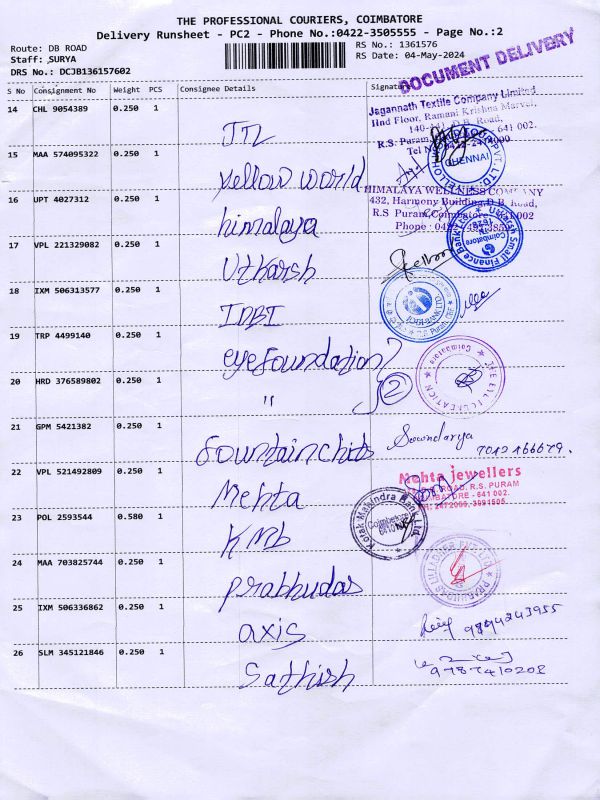 THE PROFESSIONAL COURIERS, COIMBATORE
Delivery Runsheet - PC2 - Phone No.:0422-3505555 - Page No.:2
Route: DB ROAD
Staff: SURYA
DRS No.: DCJB136157602
RS No.: 1361576
RS Date: 04-May-2024
DOCUMENT DELIVERY
S No Consignment No Weight PCS Consignee Details Signature
14 CHL 9054389 0.250 1
JTL
Jagannath Textile Company Limited
IInd Floor, Ramani Krishna Marvel,
140-A, D.B. Road,
R.S. Puram, 641 002.
15 MAA 574095322 0.250 1
Yellow world
CHENNAI
16 UPT 4027312 0.250 1
himalaya
HIMALAYA WELLNESS COMPANY
432, Harmony Building, D.B. Road,
R.S Puram, Coimbatore 641 002
17 VPL 221329082 0.250 1
Utkarsh
Utkarsh Small Finance Bank
Coimbatore
18 IXM 506313577 0.250 1
IDBI
IDBI BANK LTD.
19 TRP 4499140 0.250 1
eye foundation
THE EYE FOUNDATION
Coimbatore
20 HRD 376589802 0.250 1
"
2
21 GPM 5421382 0.250 1
fountain chits
Soundarya
22 VPL 521492809 0.250 1
Mehta
Mehta jewellers
ROAD, R.S. PURAM
COIMBATORE - 641 002.
23 POL 2593544 0.580 1
KMb
Kotak Mahindra Bank Ltd
Coimbatore
24 MAA 703825744 0.250 1
Prabhudas
PRABHUDAS LILLADHER PVT LTD
25 IXM 506336862 0.250 1
axis
9894243955
26 SLM 345121846 0.250 1
Sathish
9787410208